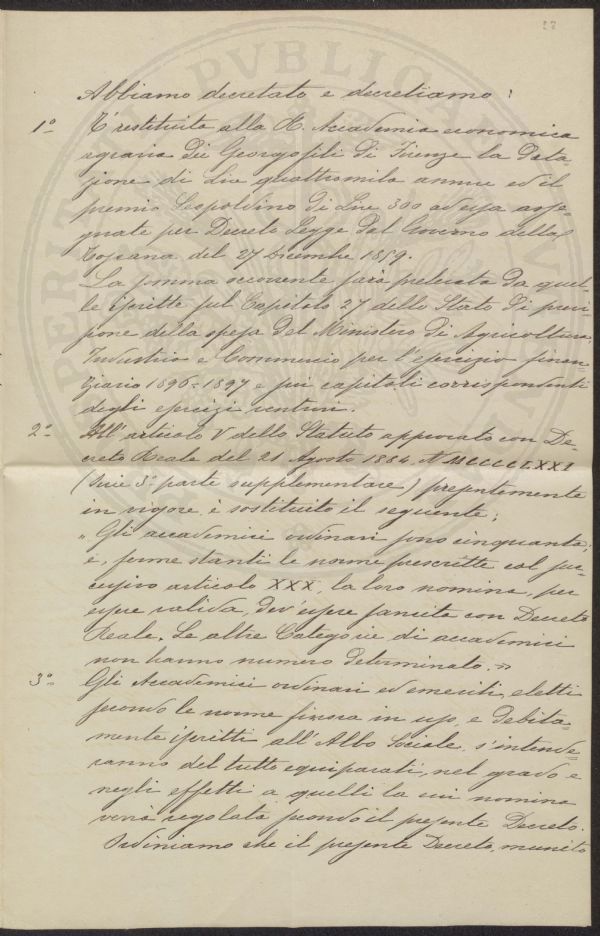 22
Abbiamo decretato e decretiamo:
1º È restituita alla R. Accademia economica
agraria dei Georgofili di Firenze la Dota=
zione di Lire quattromila annue ed il
premio Leopoldino di Lire 300 ad essa asse=
gnate per Decreto Legge dal Governo della
Toscana del 27 Dicembre 1859.
La somma occorrente sarà prelevata da quel=
le iscritte sul Capitolo 27 dello Stato di previ=
sione della spesa del Ministero di Agricoltura
Industria e Commercio per l'esercizio finan=
ziario 1896=1897 e sui capitoli corrispondenti
degli esercizi venturi.
2º All'articolo V dello Statuto approvato con De=
creto Reale del 21 Agosto 1884, Nº
(Serie 3ª parte supplementare) presentemente
in vigore, è sostituito il seguente:
"Gli accademici ordinari sono cinquanta;
e, ferme stanti le norme prescritte col suc=
cessivo articolo XXX, la loro nomina, per
essere valida, dev'essere sancita con Decreto
Reale. Le altre Categorie di accademici
non hanno numero determinato."
3º Gli Accademici ordinari ed emeriti, eletti
secondo le norme finora in uso, e debita=
mente iscritti all'Albo Sociale, s'intende=
ranno del tutto equiparati, nel grado e
negli effetti a quelli la cui nomina
verrà regolata secondo il presente Decreto.
Ordiniamo che il presente Decreto, munito